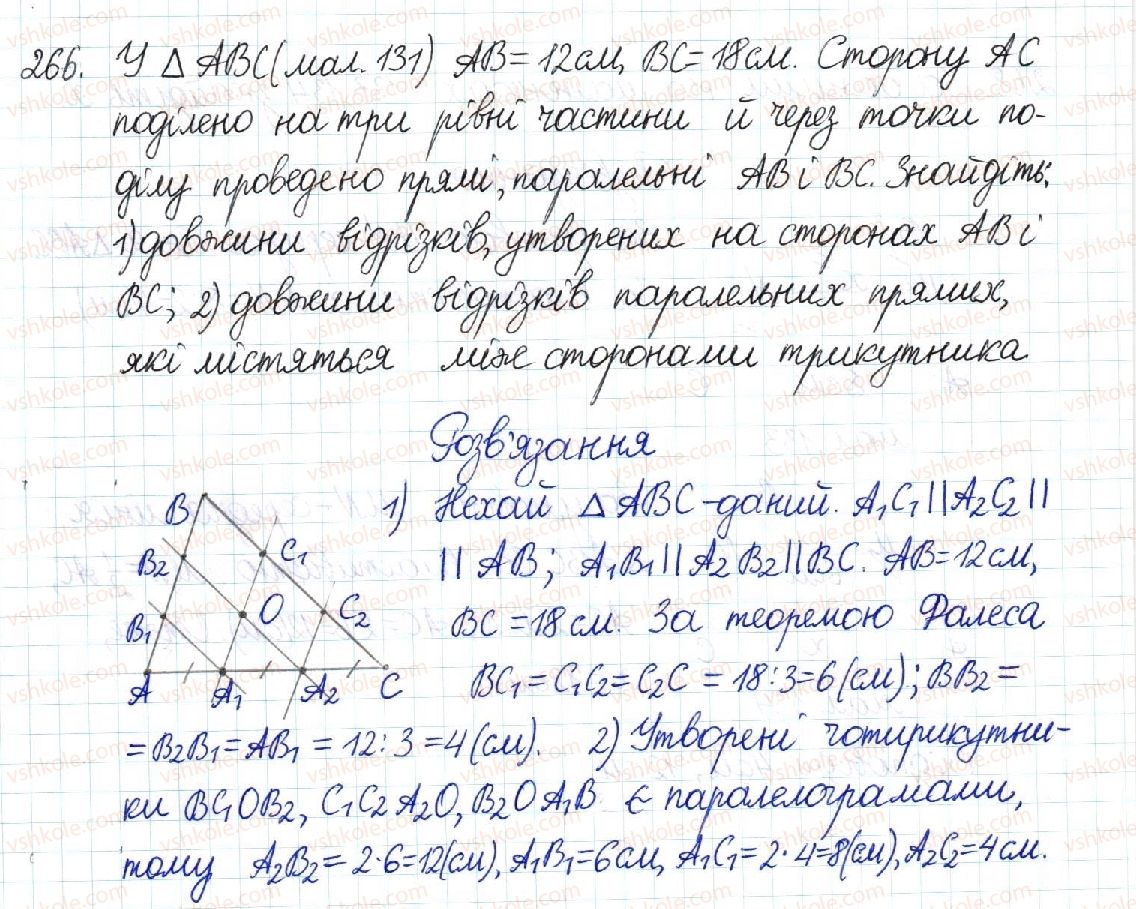 266. У △ ABC (мал. 131) AB = 12 см, BC = 18 см. Сторону AC
поділено на три рівні частини й через точки по-
ділу проведено прямі, паралельні AB і BC. Знайдіть:
1) довжини відрізків, утворених на сторонах AB і
BC; 2) довжини відрізків паралельних прямих,
які містяться між сторонами трикутника
Розв'язання
1) Нехай △ ABC - даний. A₁C₁ || A₂C₂ ||
|| AB; A₁B₁ || A₂B₂ || BC. AB = 12 см,
BC = 18 см. За теоремою Фалеса
BC₁ = C₁C₂ = C₂C = 18 : 3 = 6 (см); BB₂ =
= B₂B₁ = AB₁ = 12 : 3 = 4 (см). 2) Утворені чотирикутни-
ки BC₁OB₂, C₁C₂A₂O, B₂OA₁B є паралелограмами,
тому A₂B₂ = 2 · 6 = 12 (см), A₁B₁ = 6 см, A₁C₁ = 2 · 4 = 8 (см), A₂C₂ = 4 см.
B
B₂
C₁
B₁
O
C₂
A
A₁
A₂
C
vshkole.com